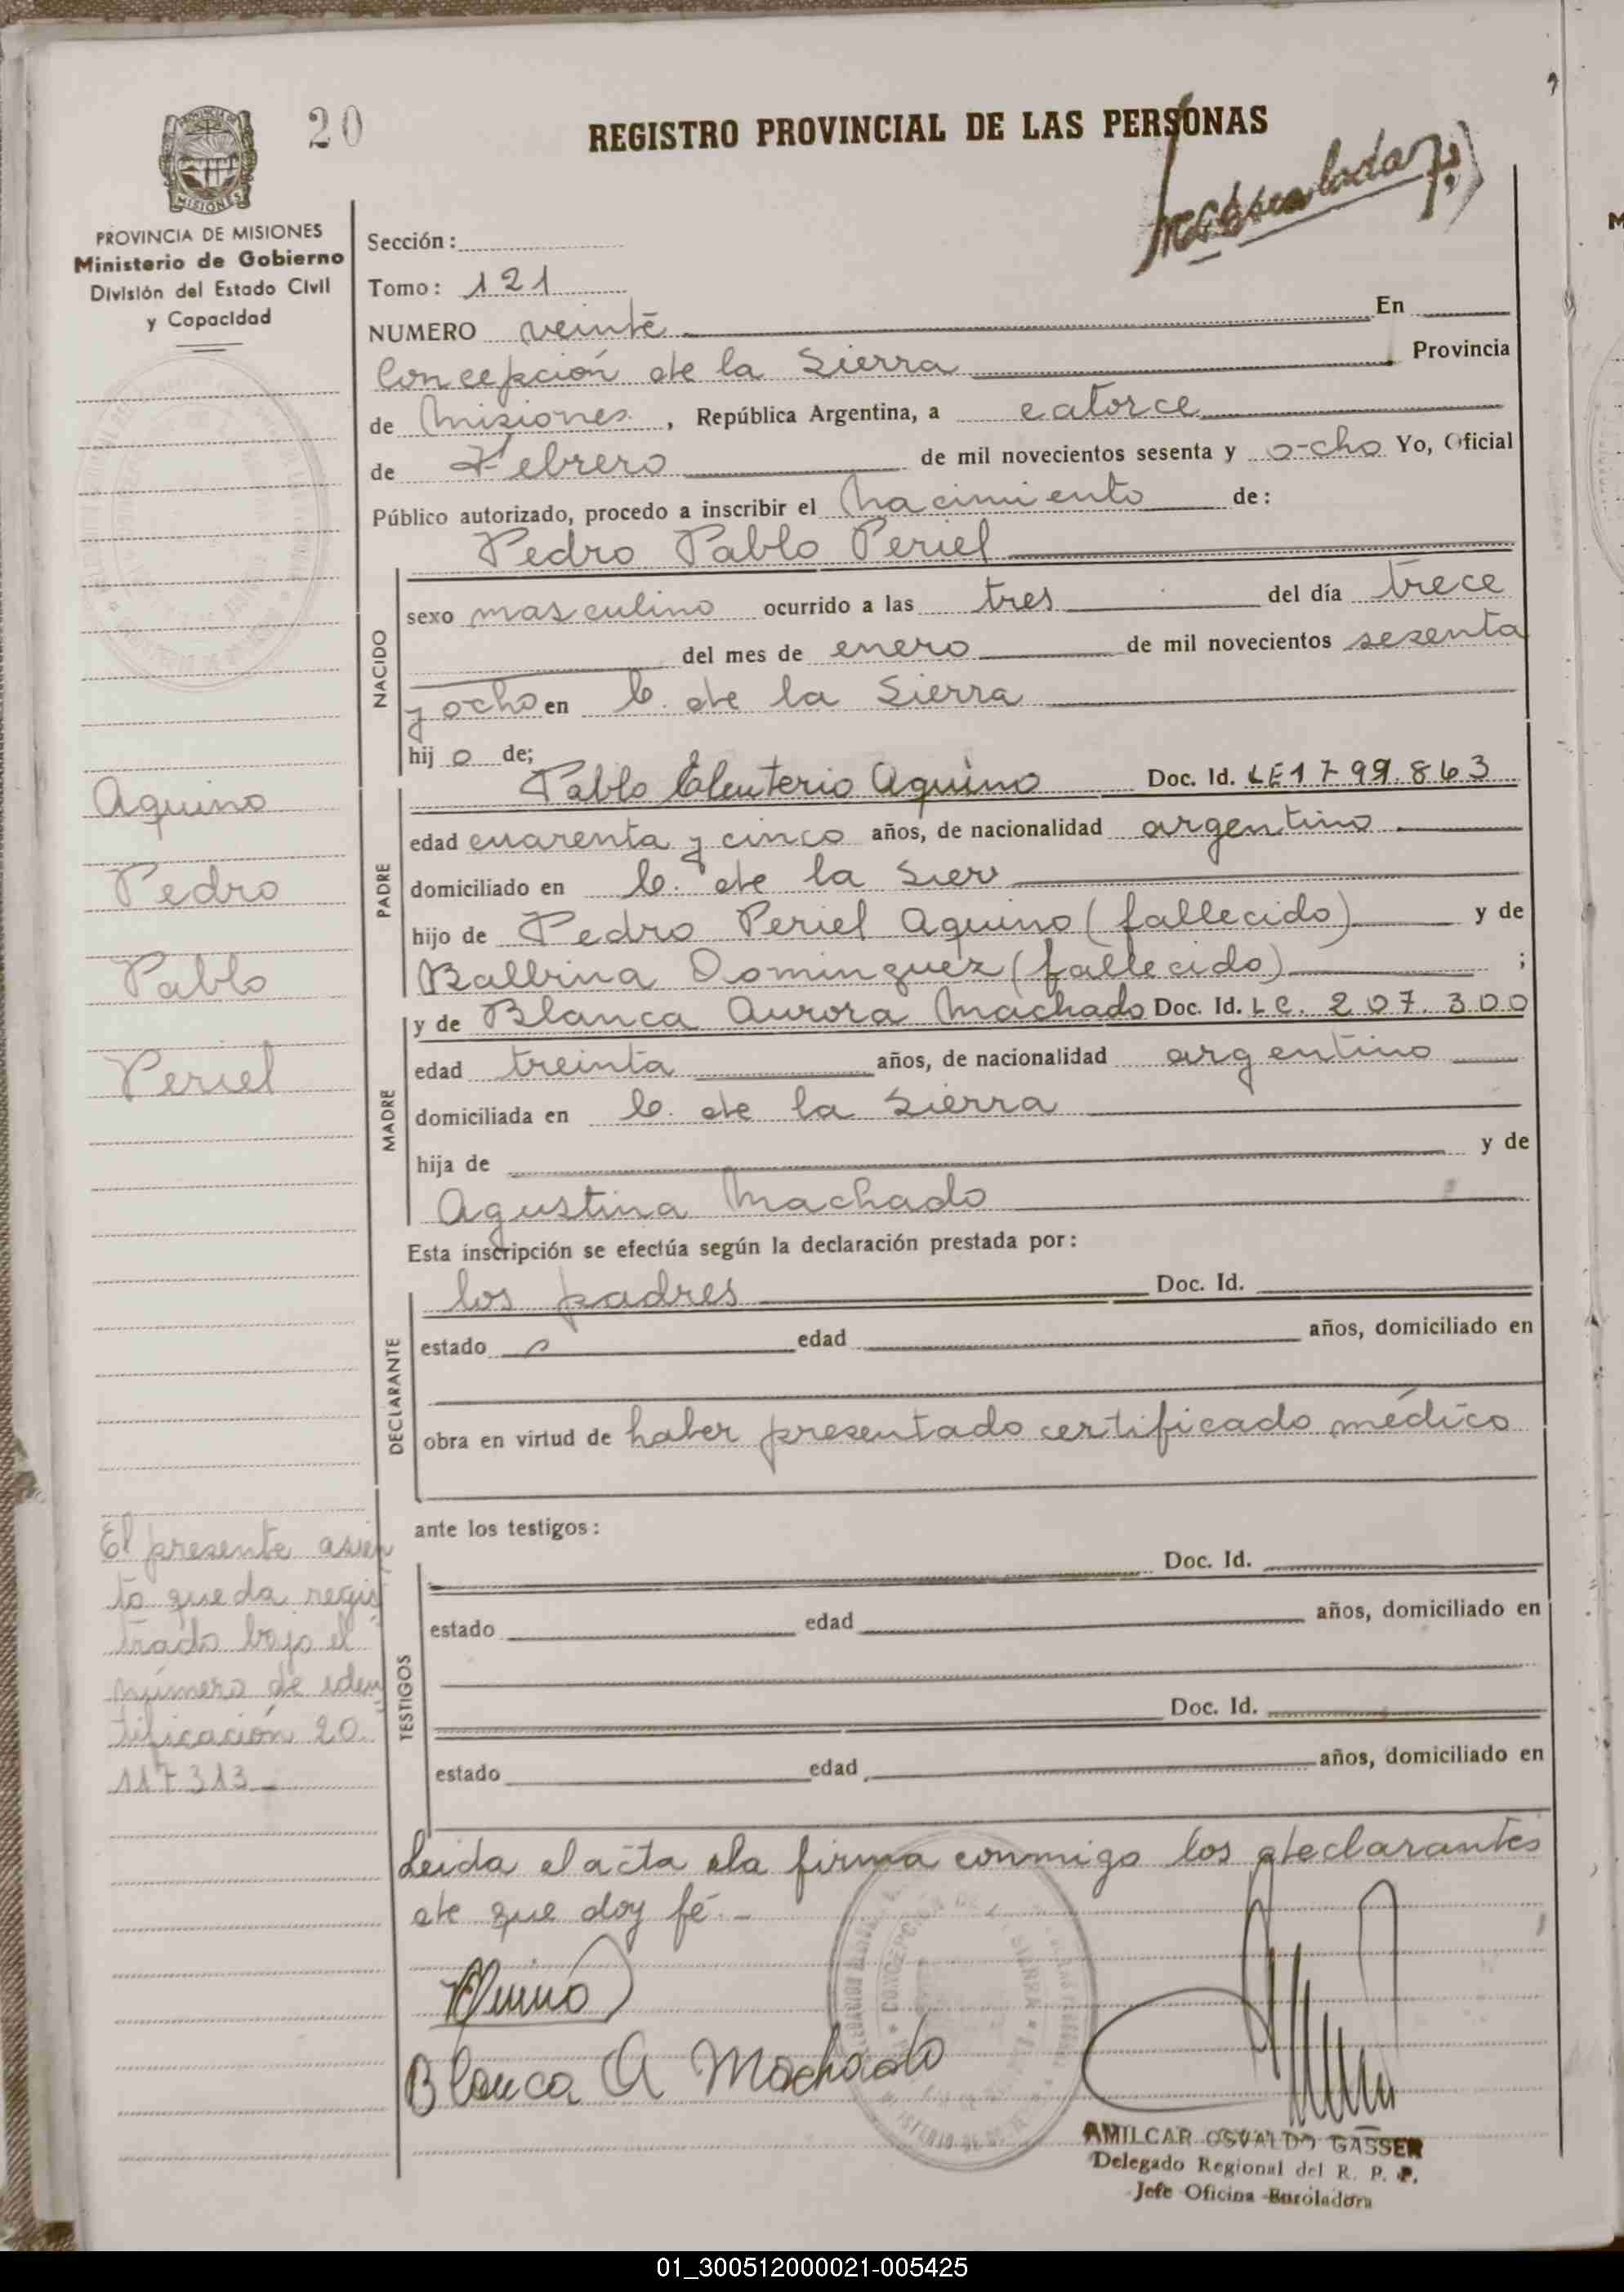 20
REGISTRO PROVINCIAL DE LAS PERSONAS
MISIONES
PROVINCIA DE MISIONES
Ministerio de Gobierno
División del Estado Civil
y Capacidad
Sección:
Tomo: 121
NUMERO veinte En
Concepción de la Sierra Provincia
de Misiones, República Argentina, a catorce
de Febrero de mil novecientos sesenta y ocho Yo, Oficial
Público autorizado, procedo a inscribir el Nacimiento de:
Pedro Pablo Periel
NACIDO
sexo masculino ocurrido a las tres del día trece
del mes de enero de mil novecientos sesenta
y ocho en C. de la Sierra
hijo de;
Pablo Eleuterio Aquino Doc. Id. LE 1799.863
PADRE
edad cuarenta y cinco años, de nacionalidad argentino
domiciliado en C. de la Sier
hijo de Pedro Periel Aquino (fallecido) y de
Balbina Dominguez (fallecido) ;
y de Blanca Aurora Machado Doc. Id. LC. 207.300
MADRE
edad treinta años, de nacionalidad argentino
domiciliada en C. de la Sierra
hija de y de
Agustina Machado
Esta inscripción se efectúa según la declaración prestada por:
los padres Doc. Id.
DECLARANTE
estado edad años, domiciliado en
obra en virtud de haber presentado certificado médico
ante los testigos:
Doc. Id.
TESTIGOS
estado edad años, domiciliado en
Doc. Id.
estado edad años, domiciliado en
Leida el acta la firma conmigo los declarantes
de que doy fé.-
Aquino
Pedro
Pablo
Periel
El presente asien
to queda regis
trado bajo el
número de iden
tificación 20.
117313
Blanca A Machado
AMILCAR OSVALDO GASSER
Delegado Regional del R. P. P.
Jefe Oficina Enroladora
01_300512000021-005425